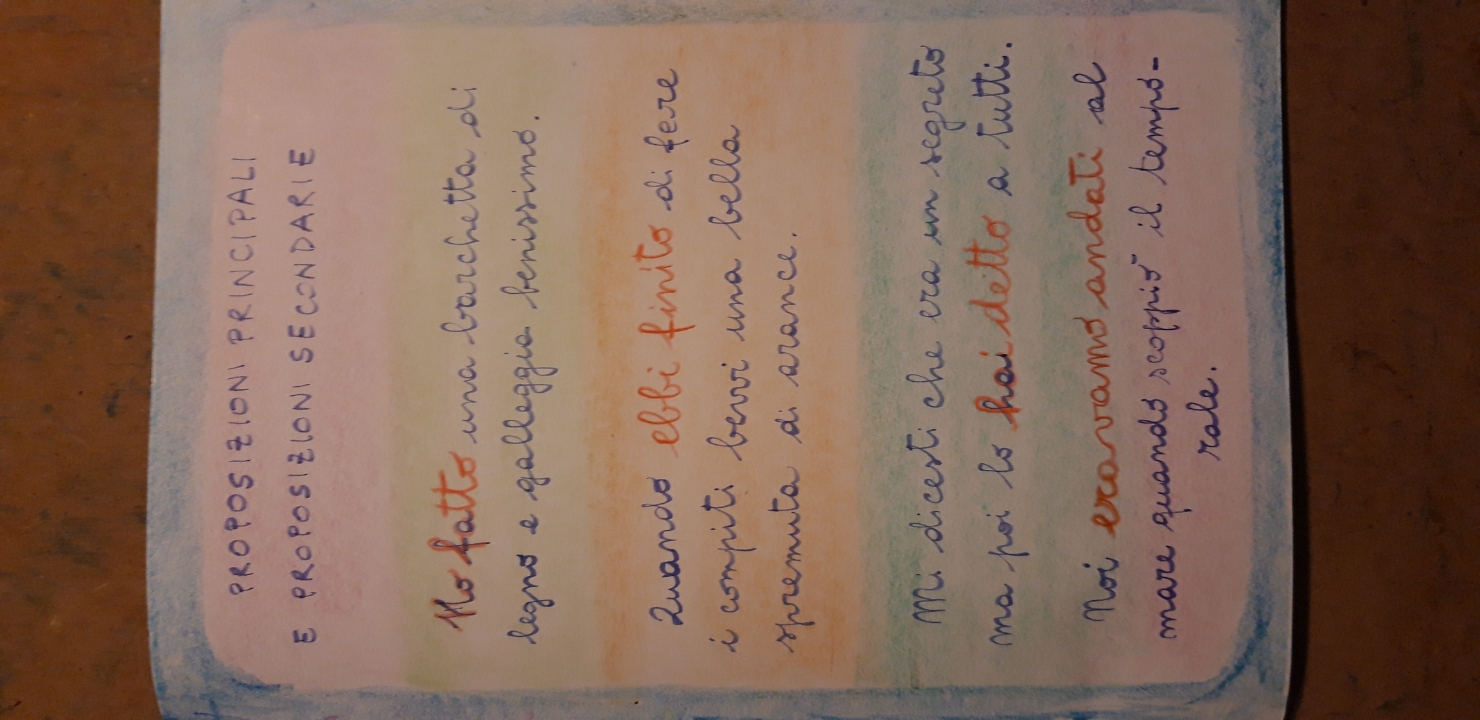 PROPOSIZIONI PRINCIPALI
E PROPOSIZIONI SECONDARIE
Ho fatto una barchetta di
legno e galleggia benissimo.
Quando ebbi finito di fere
i compiti bevvi una bella
spremuta di arance.
Mi dicesti che era un segreto
ma poi lo hai detto a tutti.
Noi eravamo andati al
mare quando scoppiò il tempo-
rale.